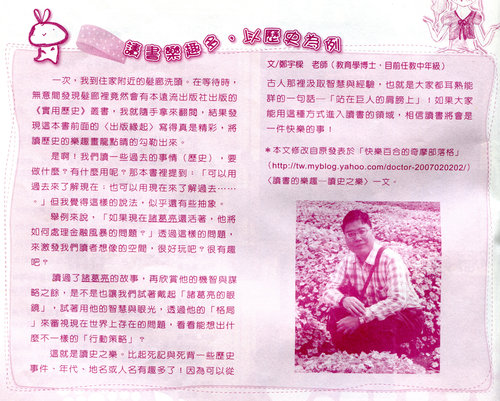 讀書樂趣多。以歷史為例
文/鄭宇樑 老師(教育學博士,目前任教中年級)
一次,我到住家附近的髮廊洗頭。在等待時,
無意間發現髮廊裡竟然會有本遠流出版社出版的
《實用歷史》叢書,我就隨手拿來翻閱,結果發
現這本書前面的〈出版緣起〉寫得真是精彩,將
讀歷史的樂趣畫龍點睛的勾勒出來。
是啊!我們讀一些過去的事情(歷史),要
做什麼?有什麼用呢?那本書裡提到:「可以用
過去來了解現在;也可以用現在來了解過去……
。」但我覺得這樣的說法,似乎還有些抽象。
舉例來說,「如果現在諸葛亮還活著,他將
如何處理金融風暴的問題?」透過這樣的問題,
來激發我們讀者想像的空間,很好玩吧?很有趣
吧?
讀過了諸葛亮的故事,再欣賞他的機智與謀
略之餘,是不是也讓我們試著戴起「諸葛亮的眼
鏡」,試著用他的智慧與眼光,透過他的「格局
」來審視現在世界上存在的問題,看看能想出什
麼不一樣的「行動策略」?
這就是讀史之樂。比起死記與死背一些歷史
事件、年代、地名或人名有趣多了!因為可以從
古人那裡汲取智慧與經驗,也就是大家都耳熟能
詳的一句話—「站在巨人的肩膀上」!如果大家
能用這種方式進入讀書的領域,相信讀書將會是
一件快樂的事!
*本文修改自原發表於「快樂百合的奇摩部落格」
(http://tw.myblog.yahoo.com/doctor-2007020202/)
〈讀書的樂趣—讀史之樂〉一文。